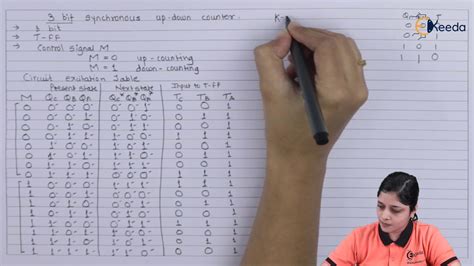 3 bit synchronous up-down counter.
K-
Keeda
Q Q T
→ 3 bit
→ T-FF
→ Control signal M
1 0 1
1 1 0
M = 0 up-counting
M = 1 down-counting
Circuit exitation Table
Present state Next state Input to T-FF
M QC QB QA QC+ QB+ QA+ TC TB TA
0 0 0 0 0 0 1 0 0 1
0 0 0 1 0 1 0 0 1 1
0 0 1 0 0 1 1 0 0 1
0 0 1 1 1 0 0 1 1 1
0 1 0 0 1 0 1 0 0 1
0 1 0 1 1 1 0 0 1 1
0 1 1 0 1 1 1 0 0 1
0 1 1 1 0 0 0 1 1 1
1 0 0 0 1 1 1 1 1 1
1 0 0 1 0 0 0 0 0 1
1 0 1 0 0 0 1 0 1 1
1 0 1 1 0 1 0 0 0 1
1 1 0 0 0 1 1 1 1 1
1 1 0 1 1 0 0 0 0 1
1 1 1 0 1 0 1 0 1 1
1 1 1 1 1 1 0 0 0 1